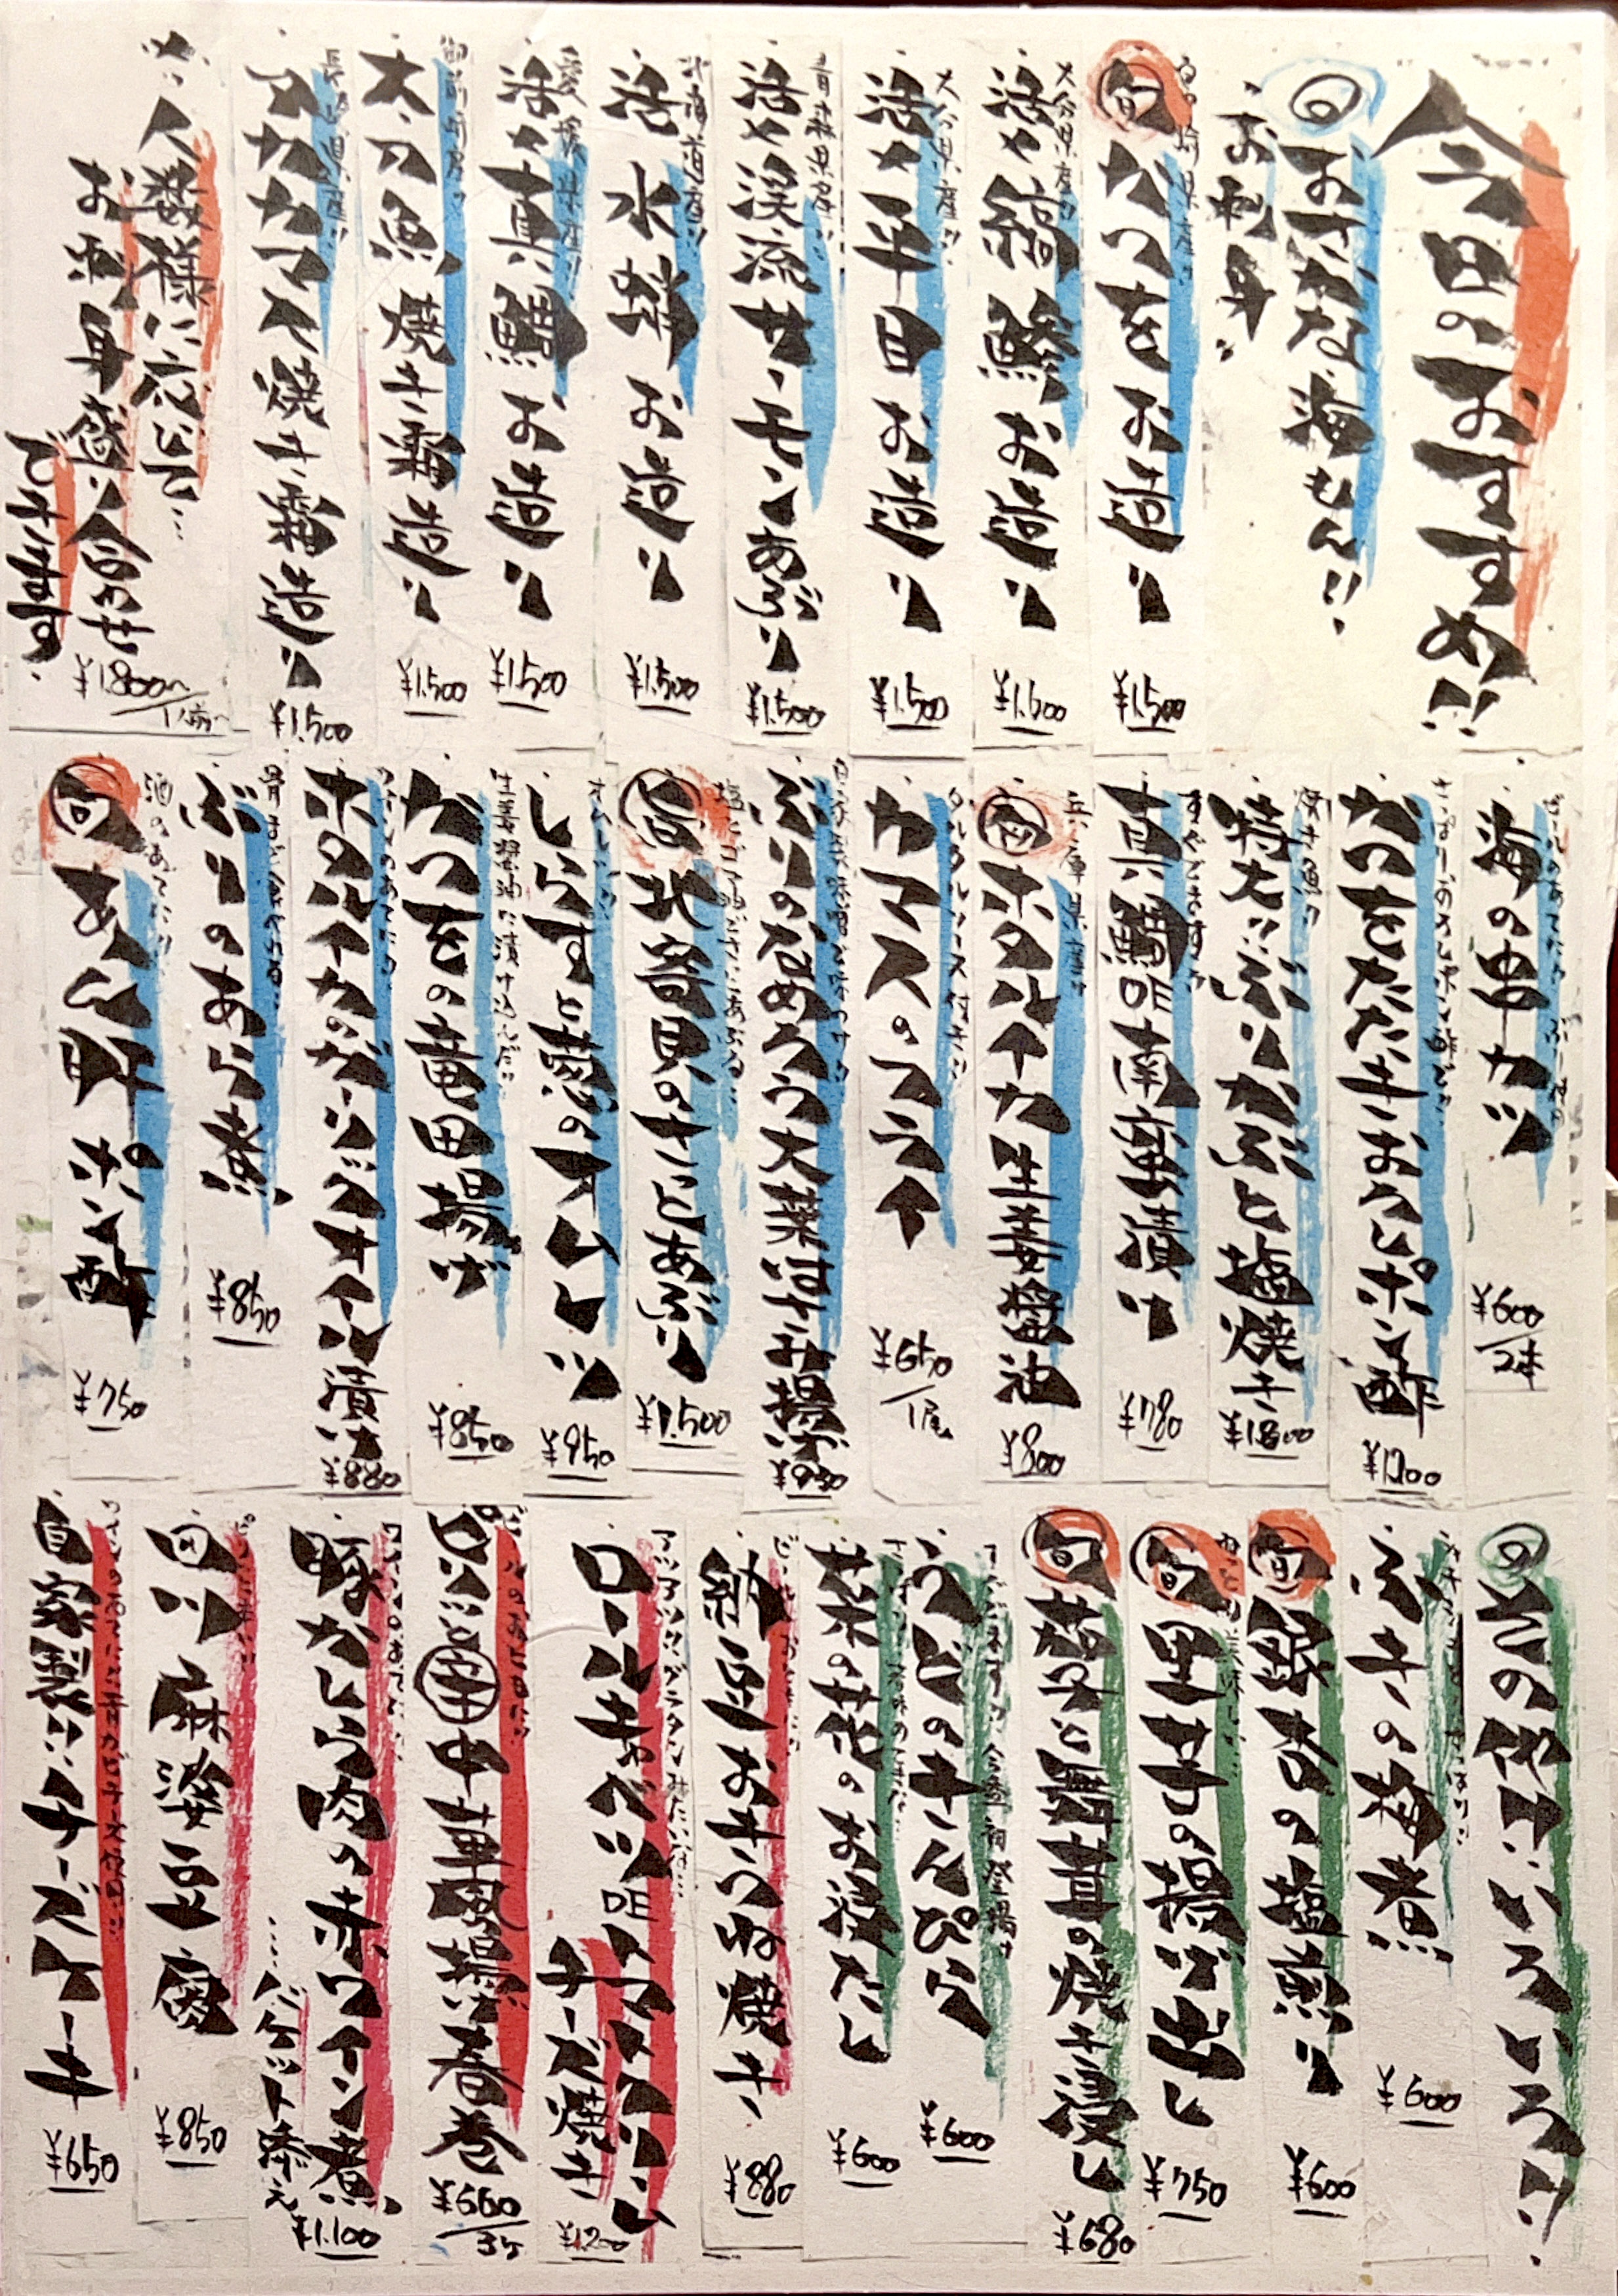 今日のおすすめ!!
おさかな海もん!!
お刺身
宮崎県産
旬
かつをお造り
¥1.500
大分県産
活〆縞鯵お造り
¥1.500
大分県産
活〆平目お造り
¥1.500
青森県産
活〆渓流サーモンあぶり
¥1.500
北海道産
活水蛸お造り
¥1.500
愛媛県産
活〆真鯛お造り
¥1.500
御前崎産
太刀魚焼き霜造り
¥1.500
長崎県産
アカカマス焼き霜造り
¥1.500
人数様に応じて…
お刺身盛り合わせ
できます
¥1.800〜/1人前〜
海の串カツ
¥600/2本
かつをたたきおろしポン酢
¥1.200
焼き魚
特大!!ぶりかぶと塩焼き
¥1.800
すぐでます
真鯛の南蛮漬け
¥780
兵庫県産
旬
ホタルイカ生姜醤油
¥800
タルタルソース付き
カマスのフライ
¥650/1尾
ぶりのなめろう大葉はさみ揚げ
¥950
旨
北寄貝のさっとあぶり
¥1.500
しらすと葱のオムレツ
¥950
生姜醤油に漬け込んだ
かつをの竜田揚げ
¥850
ホタルイカのガーリックオイル漬け
¥880
骨まで食べれる
ぶりのあら煮
¥850
酒のあてに
旬
あん肝ポン酢
¥750
その他いろいろ!!
ふきの梅煮
¥600
旬
銀杏の塩煎り
¥600
旬
里芋の揚げ出し
¥750
旬
茄子と舞茸の焼き浸し
¥680
うどのきんぴら
¥600
菜の花のお浸し
¥600
納豆おきつね焼き
¥880
ロールキャベツの
クリーム
チーズ焼き
¥1.200
中華風揚げ春巻
¥660/3ケ
豚かしら肉の赤ワイン煮
…バケット添え
¥1.100
四川麻婆豆腐
¥850
自家製!!チーズケーキ
¥650